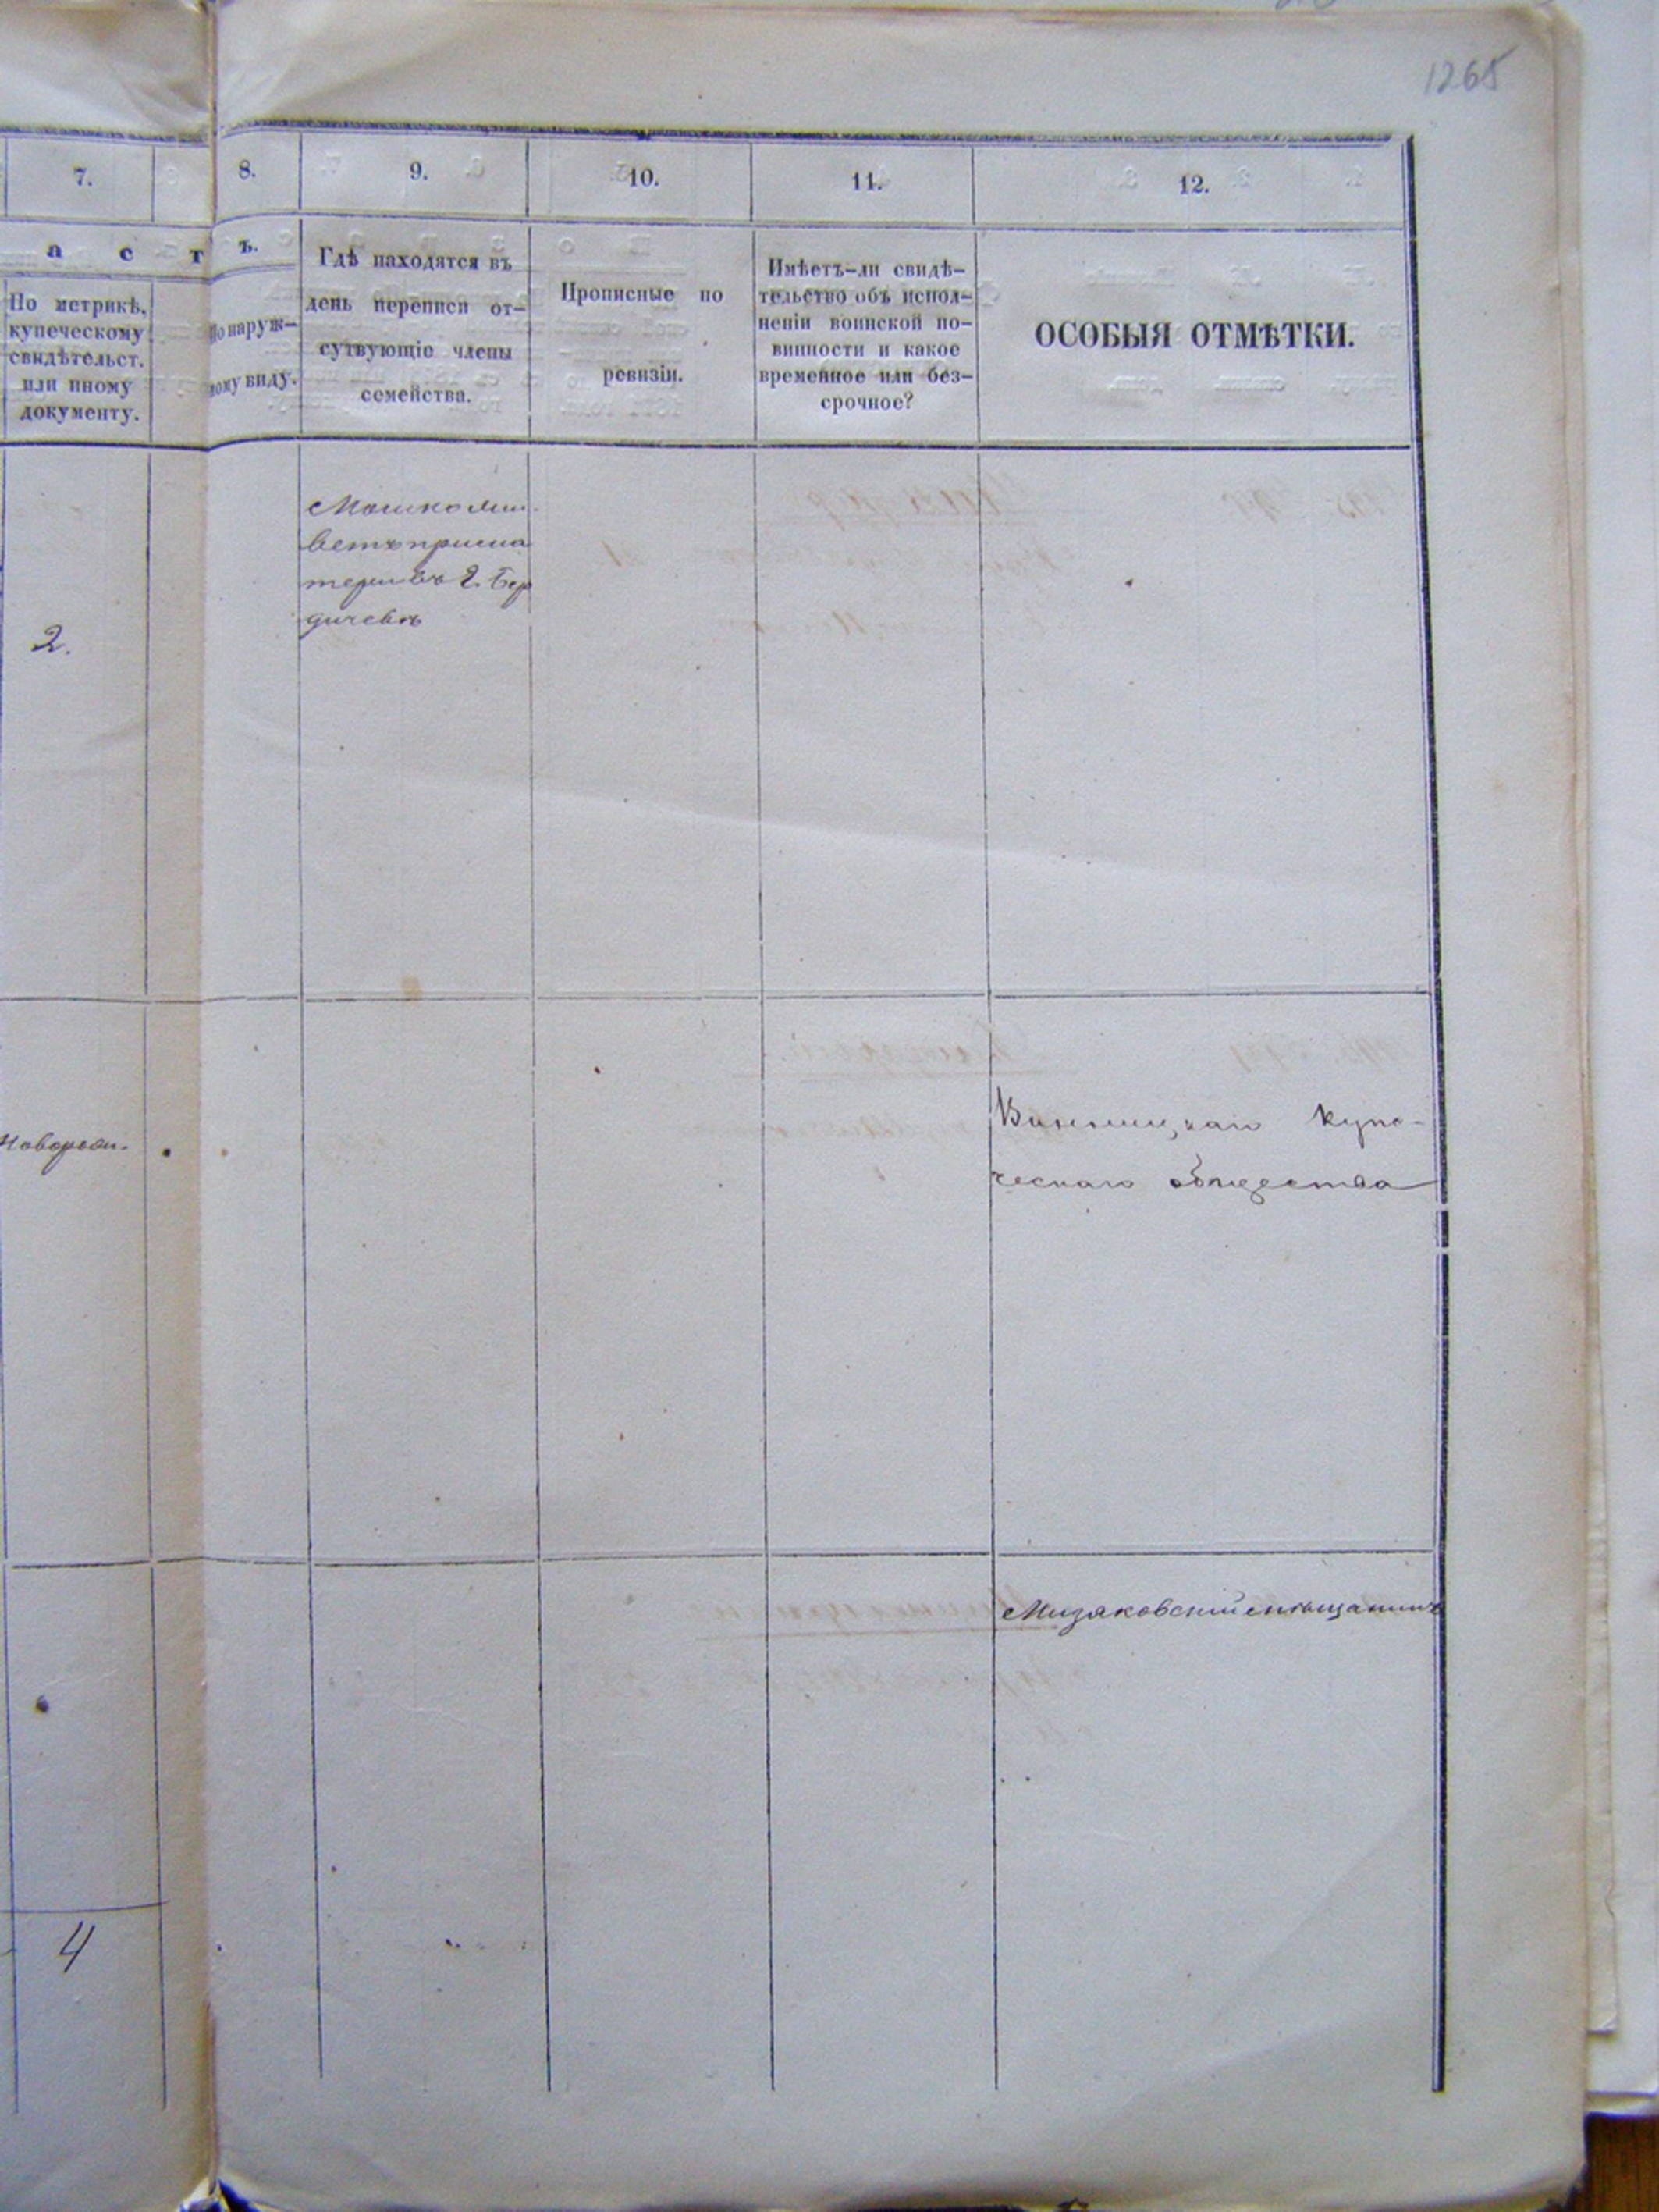 1265
7.
8.
9.
10.
11.
12.
а с т
ъ.
По метрикѣ,
купеческому
свидѣтельст.
или иному
документу.
По наруж-
ному виду.
Гдѣ находятся въ
день переписи от-
сутвующіе члены
семейства.
Прописные по
ревизіи.
Имѣетъ-ли свидѣ-
тельство объ испол-
неніи воинской по-
винности и какое
временное или без-
срочное?
ОСОБЫЯ ОТМѢТКИ.
2.
Мошко жи-
ветъ при ма
тери въ г. Бер
дичевѣ
Новорож.
Винницкаго купе-
ческаго общества
Мизяковский мѣщанинъ
4